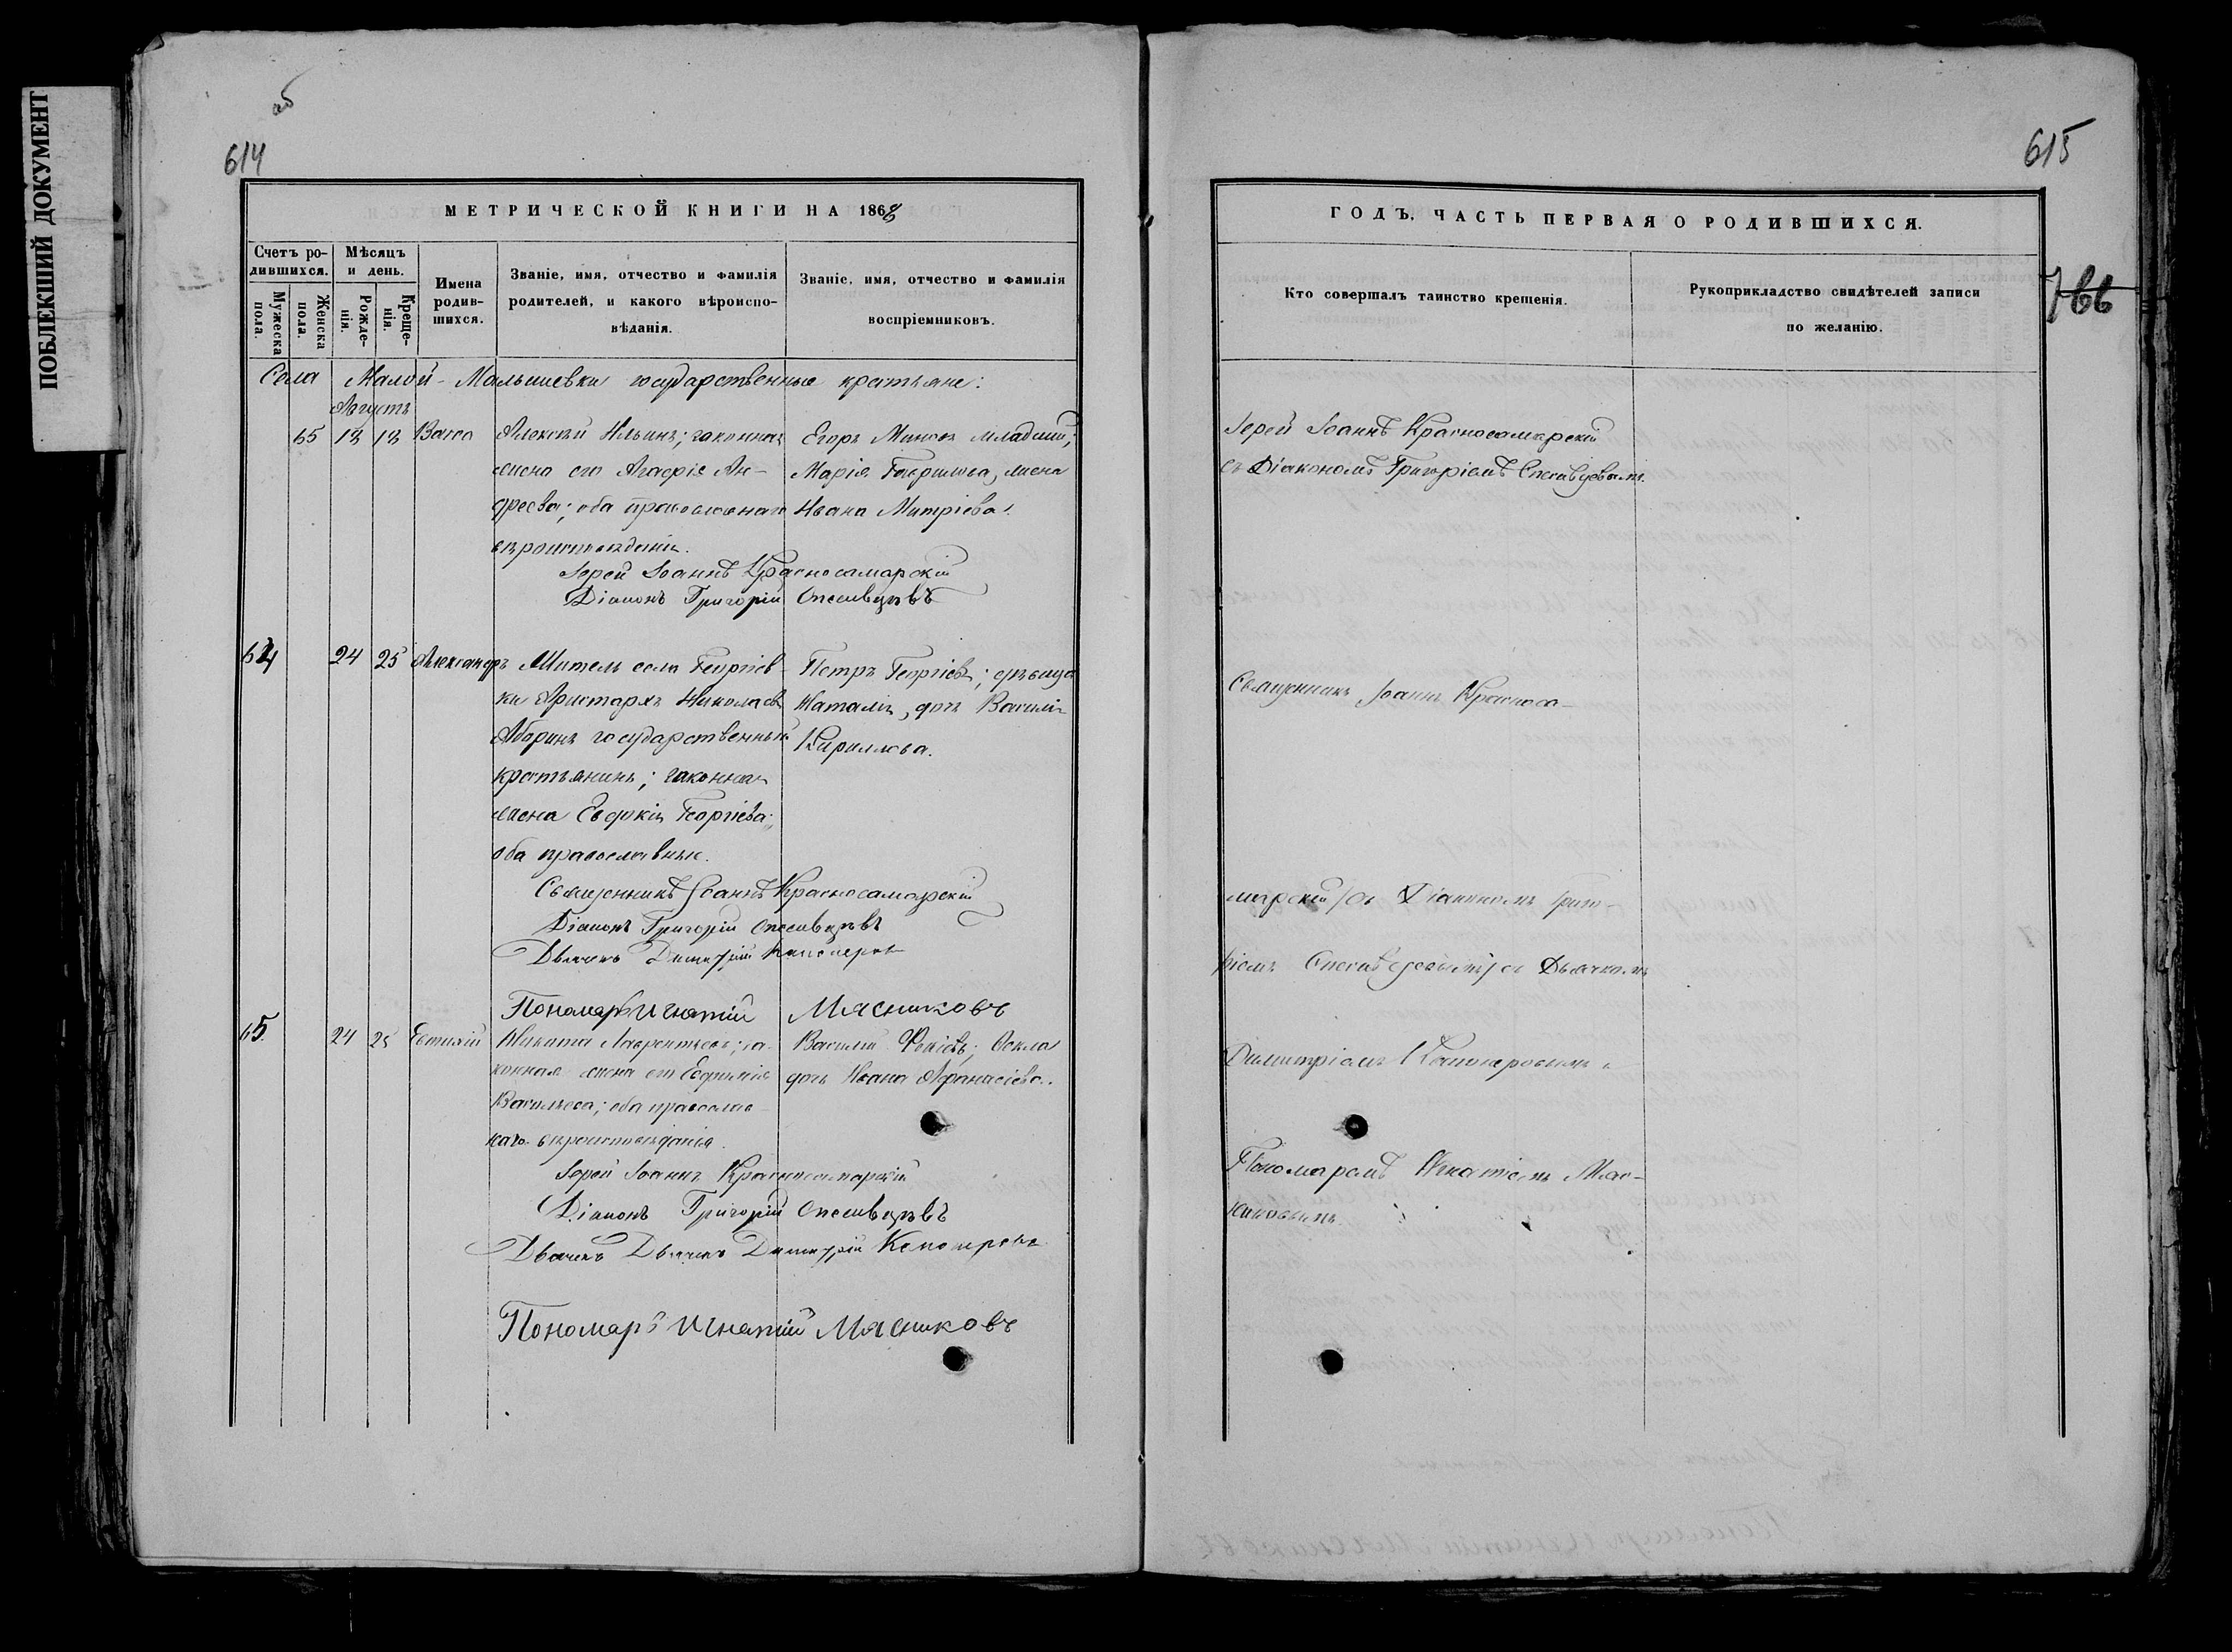 ПОБЛЕКШИЙ ДОКУМЕНТ
об
614
МЕТРИЧЕСКОЙ КНИГИ НА 1868
Счетъ ро-
дившихся.
Мѣсяцъ
и день.
Мужеска
пола.
Женска
пола.
Рожде-
нія.
Креще-
нія.
Имена
родив-
шихся.
Званіе, имя, отчество и фамилія
родителей, и какого вѣроиспо-
вѣданія.
Званіе, имя, отчество и фамилія
воспріемниковъ.
Села Малой-Малышевки государственные крестьяне:
Августъ
65 18 18 Васса Алексѣй Ильинъ; законная Егоръ Миновъ младшій;
жена его Агафія Ан- Марія Гаврилова, жена
дреева; оба православнаго Ивана Митріева.
вѣроисповѣданія.
Іерей Іоаннъ Красносамарскій
Діаконъ Григорій Спесивцевъ
64 24 25 Александръ Житель села Георгіев- Петръ Георгіевъ; дѣвица
ки Аристархъ Николаевъ Наталія, дочь Василія
государственный Кириллова.
крестьянинъ; законная
жена Евдокія Георгіева;
оба православные.
Священникъ Іоаннъ Красносамарскій
Діаконъ Григорій Спесивцевъ
Дьячекъ Димитрій
Пономарь Игнатій Мясниковъ
65. 24 25 Евтихій Никита Лаврентьевъ; за- Василій Ѳокіевъ; Ѳекла
конная жена его Евфимія дочь Ивана Афанасіева.
Васильева; оба православ-
наго вѣроисповѣданія.
Іерей Іоаннъ Красносамарскій
Діаконъ Григорій Спесивцевъ
Дьячекъ Дьячекъ Димитрій
Пономарь Игнатій Мясниковъ
615
766
ГОДЪ, ЧАСТЬ ПЕРВАЯ О РОДИВШИХСЯ.
Кто совершалъ таинство крещенія.
Рукоприкладство свидѣтелей записи
по желанію.
Іерей Іоаннъ Красносамарскій
съ Діакономъ Григоріемъ Спесивцевымъ.
Священникъ Іоаннъ Красноса-
марскій съ Діакономъ Григо-
ріемъ Спесивцевымъ съ Дьячкомъ
Димитріемъ и
Пономаремъ Игнатіемъ Мяс-
никовымъ.